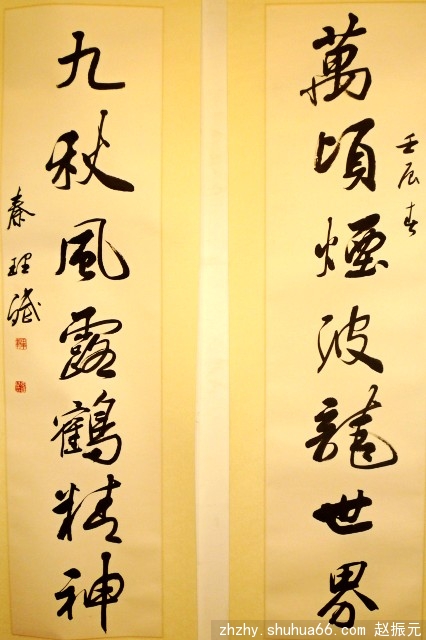 壬辰春
萬頃煙波龍世界
九秋風露鶴精神
秦理斌
zhzhy.shuhua66.com 赵振元